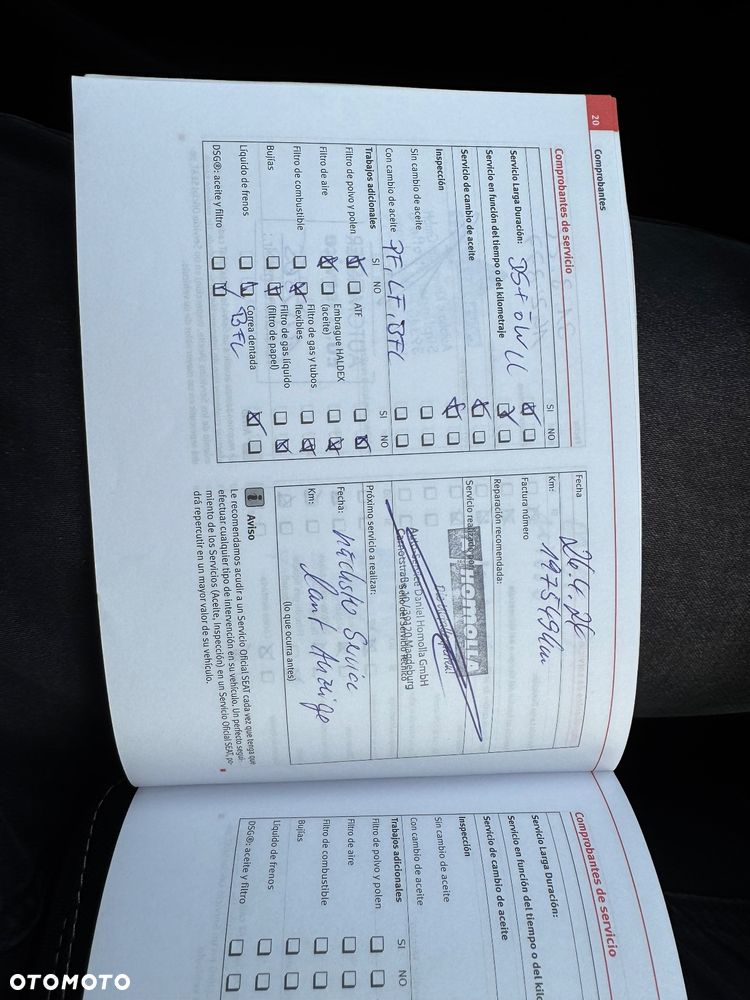 20
Comprobantes
Comprobantes de servicio
SI NO
Servicio Larga Duración:
Servicio en función del tiempo o del kilometraje
Servicio de cambio de aceite
Inspección
Sin cambio de aceite
Con cambio de aceite
PF, LF, BFL
Trabajos adicionales
SI NO
SI NO
Filtro de polvo y polen
ATF
Filtro de aire
Embrague HALDEX
(aceite)
Filtro de combustible
Filtro de gas y tubos
flexibles
Bujías
Filtro de gas líquido
(filtro de papel)
Líquido de frenos
Correa dentada
BFL
DSG®: aceite y filtro
Fecha
26.4.24
Km:
197549km
Factura número
Reparación recomendada:
Servicio realizado por
HOMOLLA
Autoservice Daniel Homolla GmbH
39120 Magdeburg
Sello del Servicio Técnico
Próximo servicio a realizar:
Fecha:
nächster Service
Km:
laut Anzeige
(lo que ocurra antes)
i
Aviso
Le recomendamos acudir a un Servicio Oficial SEAT cada vez que tenga que
efectuar cualquier tipo de intervención en su vehículo. Un perfecto segui-
miento de los Servicios (Aceite, Inspección) en un Servicio Oficial SEAT, po-
drá repercutir en un mayor valor de su vehículo.
Comprobantes de servicio
Servicio Larga Duración:
Servicio en función del tiempo o del kilo
Servicio de cambio de aceite
Inspección
Sin cambio de aceite
Con cambio de aceite
Trabajos adicionales
SI NO
Filtro de polvo y polen
Filtro de aire
Filtro de combustible
Bujías
Líquido de frenos
DSG®: aceite y filtro
OTOMOTO